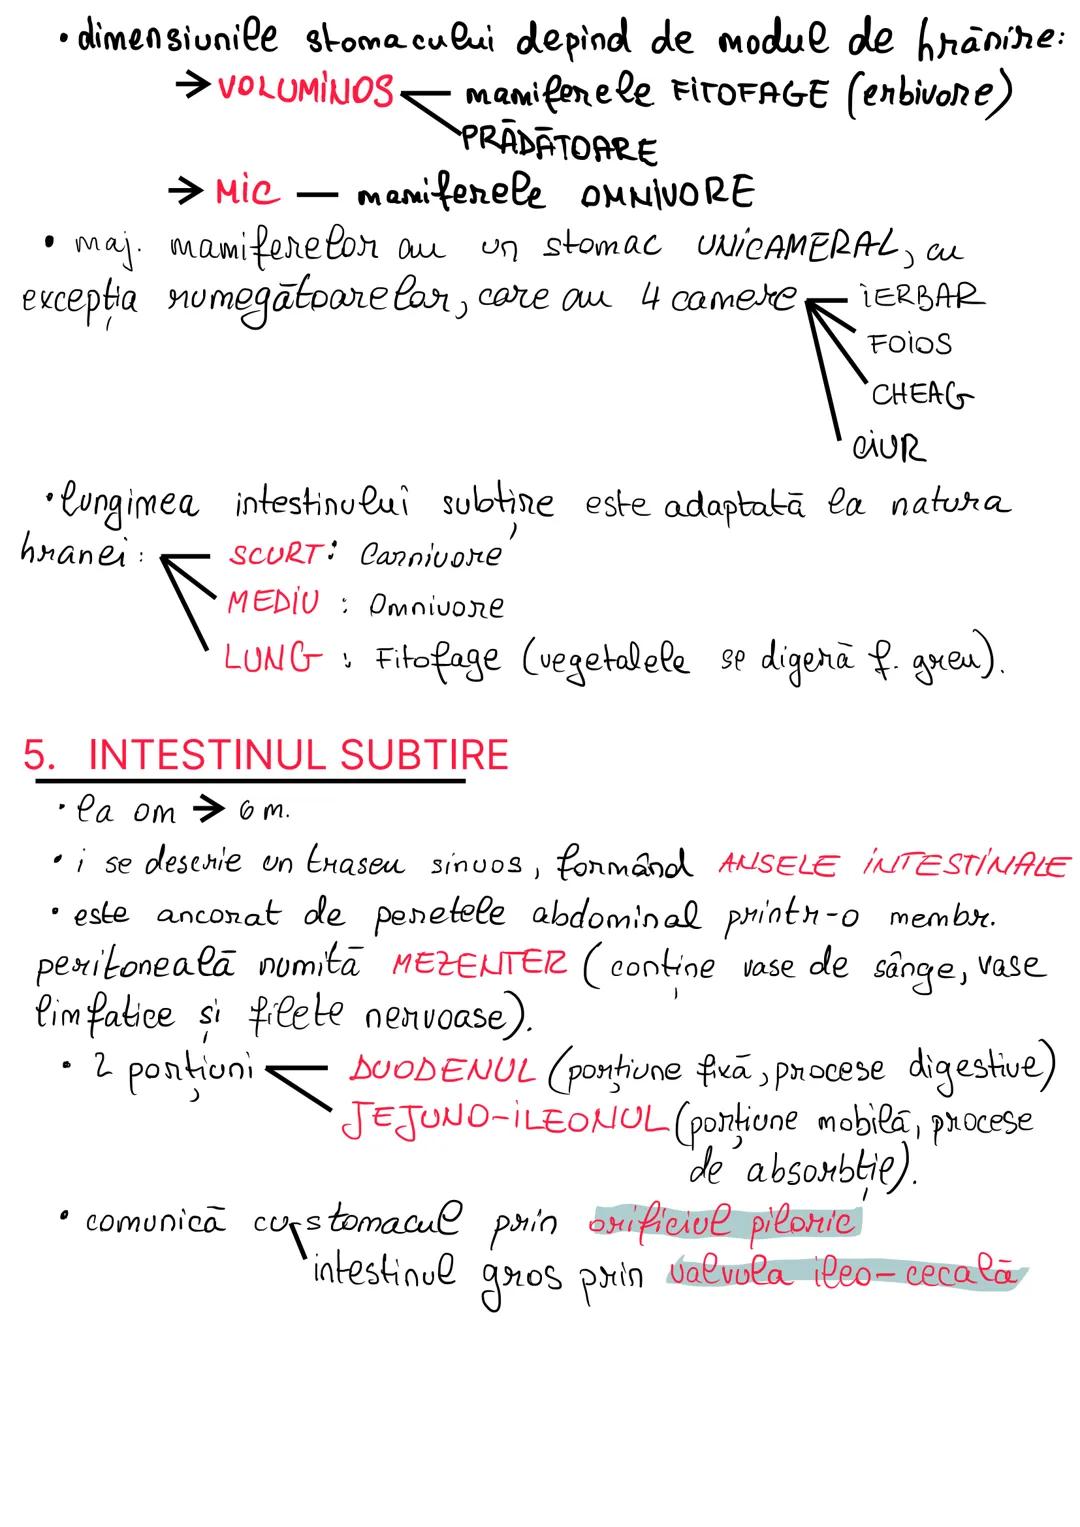 • dimensiunile stomacului depind de modul de hrănire:
→ VOLUMINOS — mamiferele FITOFAGE (erbivore)
PRĂDĂTOARE
→ MIC — mamiferele OMNIVORE
• maj. mamiferelor au un stomac UNICAMERAL, cu
excepția rumegătoarelor, care au 4 camere — IERBAR
FOIOS
CHEAG
CIUR
• lungimea intestinului subțire este adaptată la natura
hranei: — SCURT: Carnivore
MEDIU : Omnivore
LUNG : Fitofage (vegetalele se digeră f. greu).
5. INTESTINUL SUBTIRE
• la om → 6 m.
• i se descrie un traseu sinuos, formând ANSELE INTESTINALE
• este ancorat de peretele abdominal printr-o membr.
peritoneală numită MEZENTER (conține vase de sânge, vase
limfatice și filete nervoase).
• 2 porțiuni — DUODENUL (porțiune fixă, procese digestive)
JEJUNO-ILEONUL (porțiune mobilă, procese
de absorbție).
• comunică cu stomacul prin orificiul piloric
intestinul gros prin valvula ileo-cecală